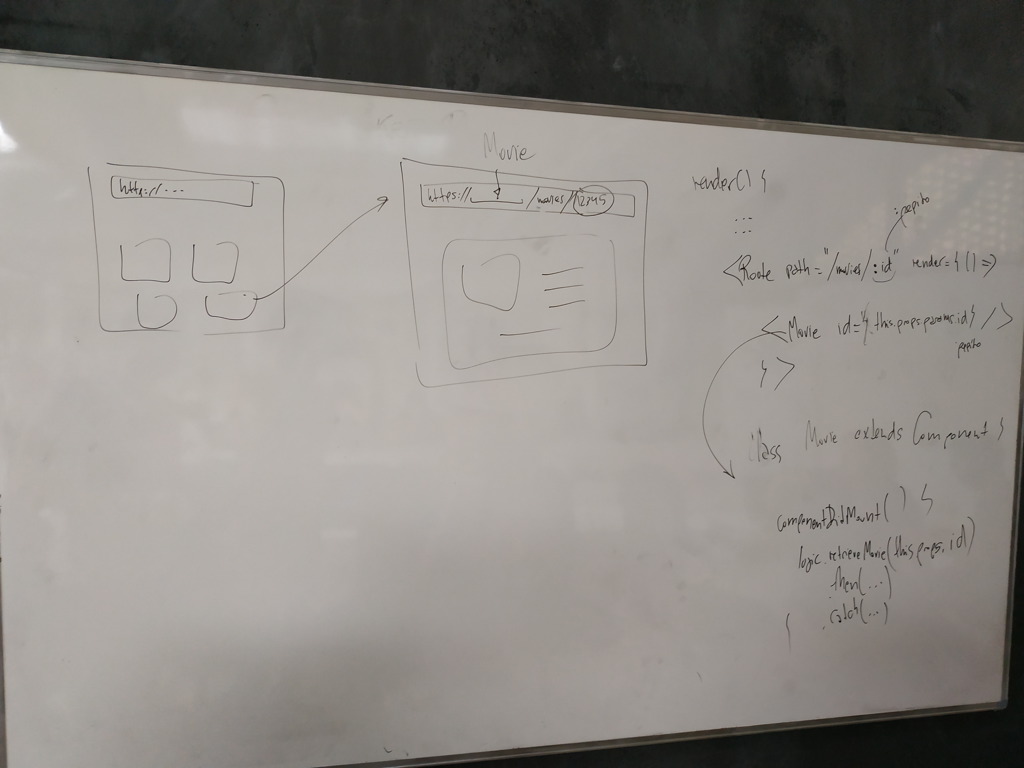 https://...
Movie
https://______/movies/12345
render() {
...
...
:pepito
<Route path="/movies/:id" render={() =>
<Movie id={this.props.params.id} />
pepito
} >
class Movie extends Component {
componentDidMount() {
logic.retrieveMovie(this.props.id)
.then(...)
.catch(...)
}